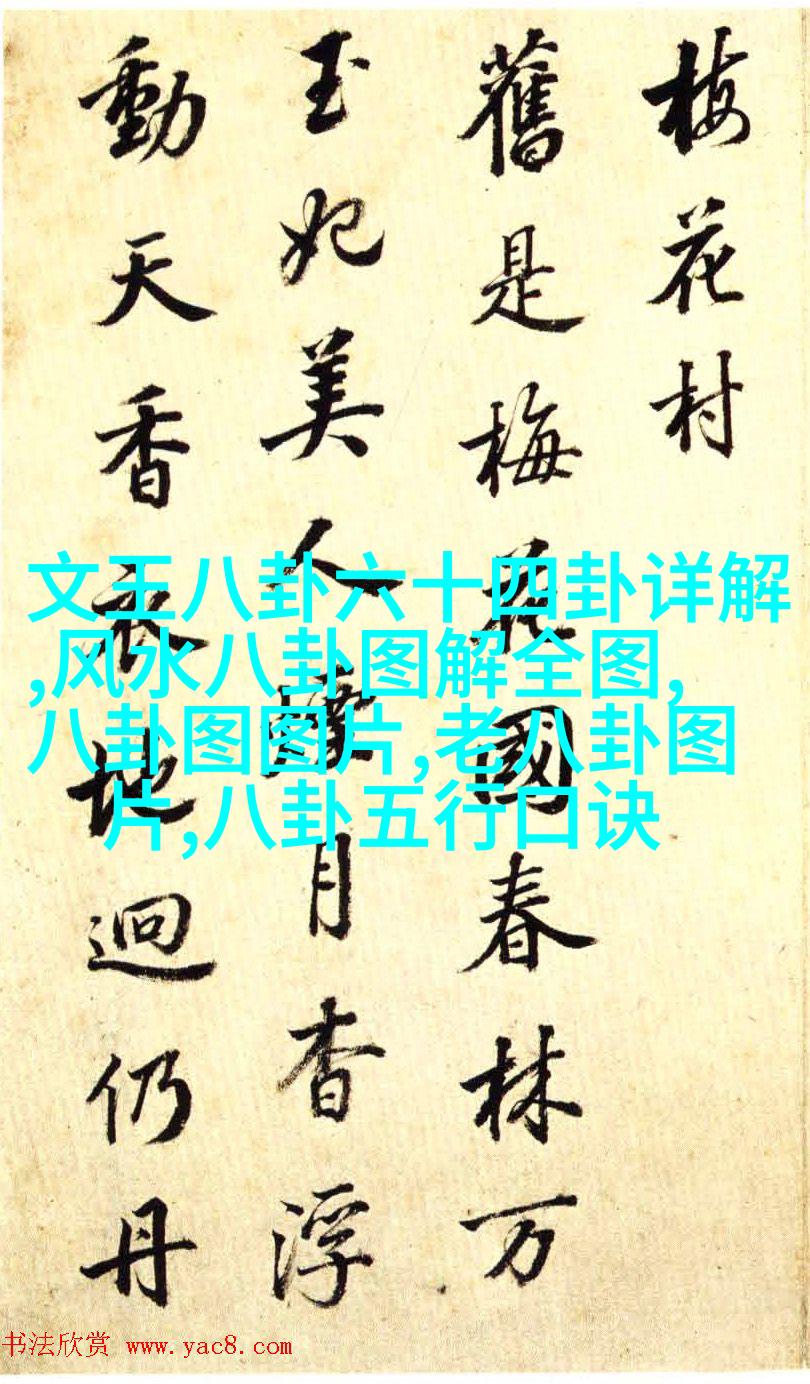 梅花村
舊是梅花國春林万
玉妃美人月杳浮
動天香地迥仍丹
文王八卦六十四卦详解
,风水八卦图解全图,
八卦图图片,老八卦图
片,八卦五行口诀
书法欣赏 www.yac8.com